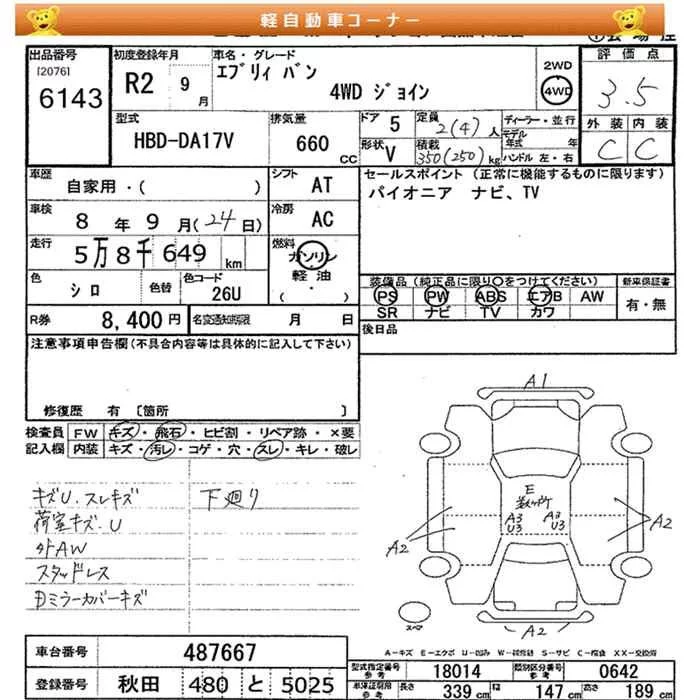 軽自動車コーナー
出品番号
[2076]
6143
初度登録年月
R2 9月
車名・グレード
エブリィ バン
4WD ジョイン
2WD
4WD
評価点
3.5
外装 内装
C C
型式
HBD-DA17V
排気量
660 cc
ドア 5
形状 V
定員
2(4)人
積載
350(250)kg
ディーラー・並行
モデル
年式 年
ハンドル 左・右
車歴
自家用・( )
シフト AT
車検
8年9月(24日)
冷房 AC
走行
5万8千649km
燃料
ガソリン
軽油
・( )
色
シロ
色替
色コード
26U
R券 8,400円
名変通知期限 月 日
セールスポイント (正常に機能するものに限ります)
パイオニア ナビ、TV
装備品 (純正品に限り○をつけてください)
PS PW ABS エアB AW
SR ナビ TV カワ
新車保証書
有・無
後日品
注意事項申告欄(不具合内容等は具体的に記入して下さい)
修復歴 有 [箇所 ]
検査員
記入欄
FW キズ・飛石・ヒビ割・リペア跡・×要
内装 キズ・汚レ・コゲ・穴・スレ・キレ・破レ
キズU.スレキズ
荷室キズ.U
外AW
スタッドレス
ミラーカバーキズ
下廻り
A1
E
数ヶ所
A3 A3
U3 U3
A2
A2
A2
スペア
A-キズ E-エクボ U-凹み W-補修跡 S-サビ C-腐食 XX-交換済
車台番号 487667
登録番号 秋田 480 と 5025
型式指定番号
参考
18014
類別区分番号
参考
0642
車体証明用
参考
長さ 339cm 幅 147cm 高さ 189cm